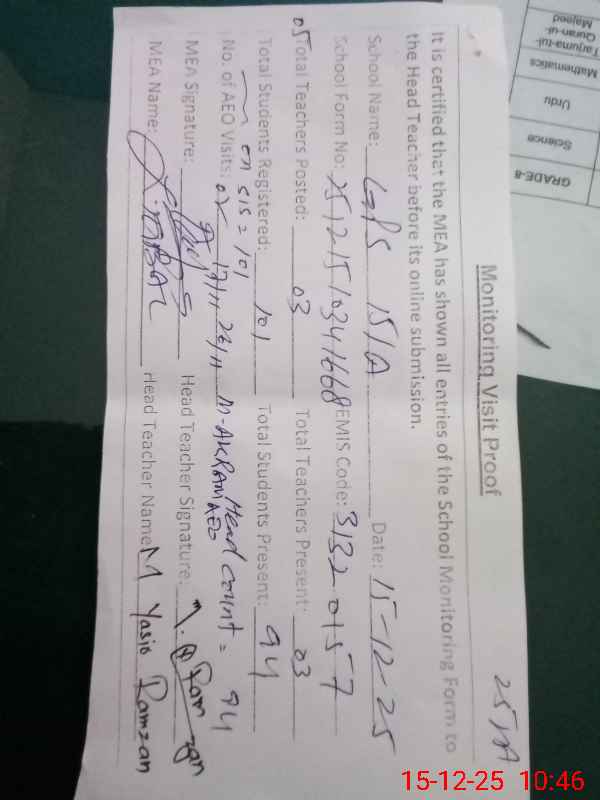 Monitoring Visit Proof
It is certified that the MEA has shown all entries of the School Monitoring Form to
the Head Teacher before its online submission.
School Name: GPS 15/A Date: 15-12-25
School Form No: EMIS Code: 31320157
05 Total Teachers Posted: 03 Total Teachers Present: 03
Total Students Registered: 101 Total Students Present: 94
on SIS = 101 Head count = 94
No. of AEO Visits: 02 17/11 26/11 M-AKRAM AEO
MEA Signature: Head Teacher Signature:
MEA Name: Head Teacher Name: M Yasin Ramzan
GRADE-8
Science
Urdu
Mathematics
Tarjuma-tul-
Quran-ul-
Majeed
15-12-25 10:46